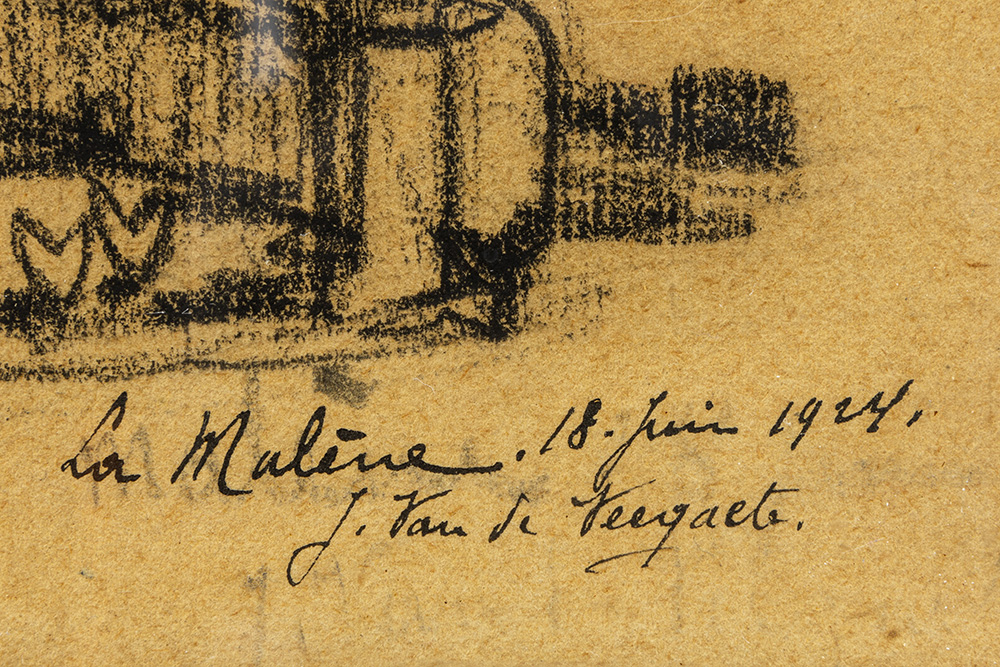 La Malène. 18. Juin 1924.
J. Van de Veegaete.